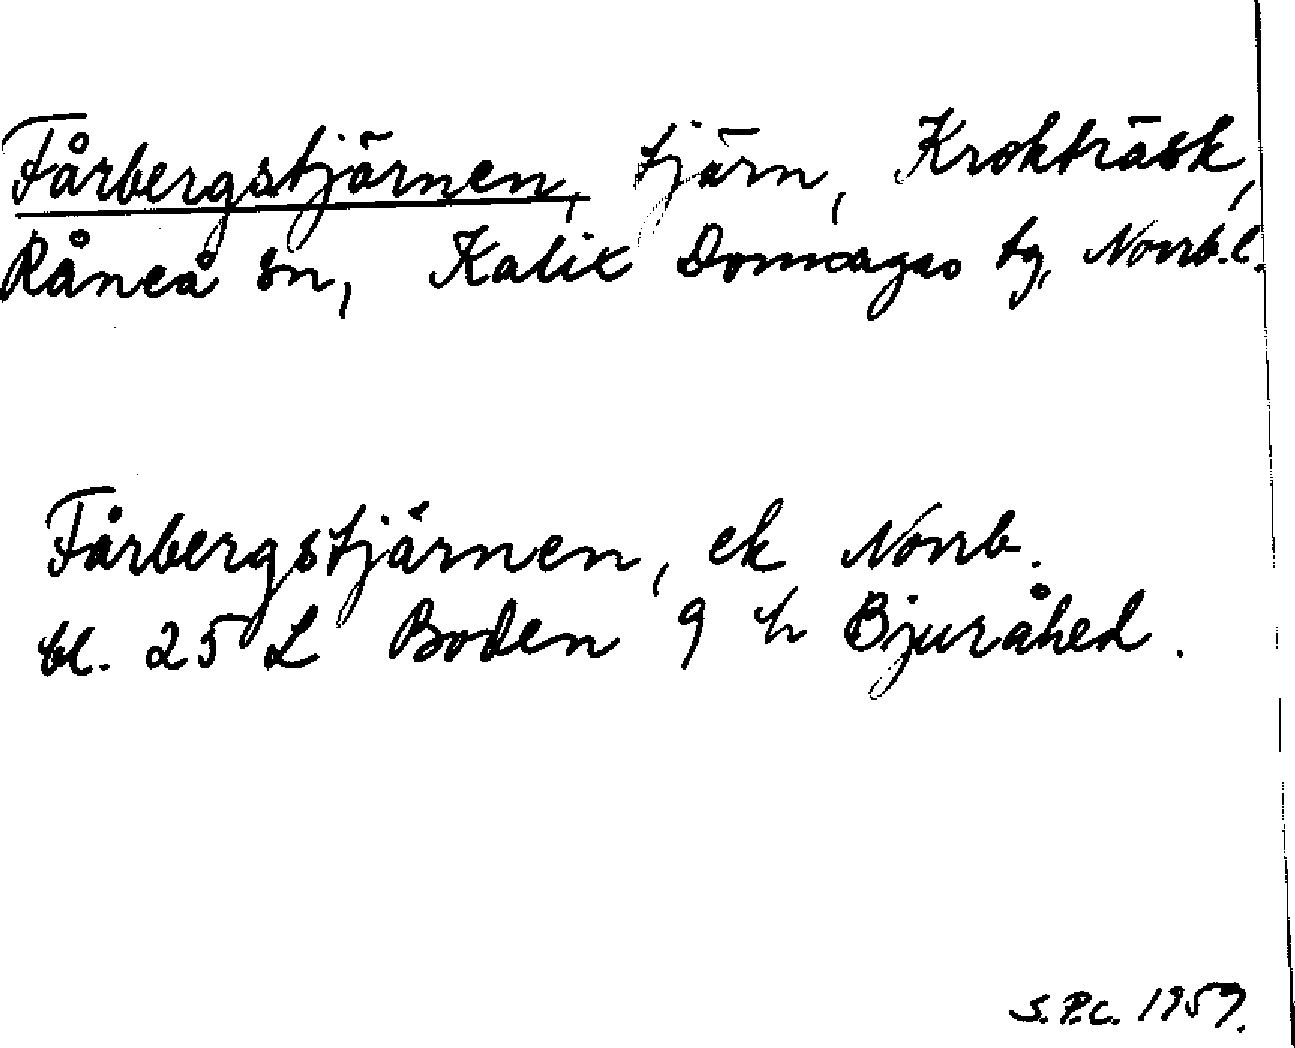 Fårbergstjärnen, tjärn, Krokträsk,
Råneå sn, Kalix Domsagas tg, Norrb. l.
Fårbergstjärnen, ek Norrb.
bl. 25 L Boden 9 h Bjuråhed.
S.P.C. 1959.